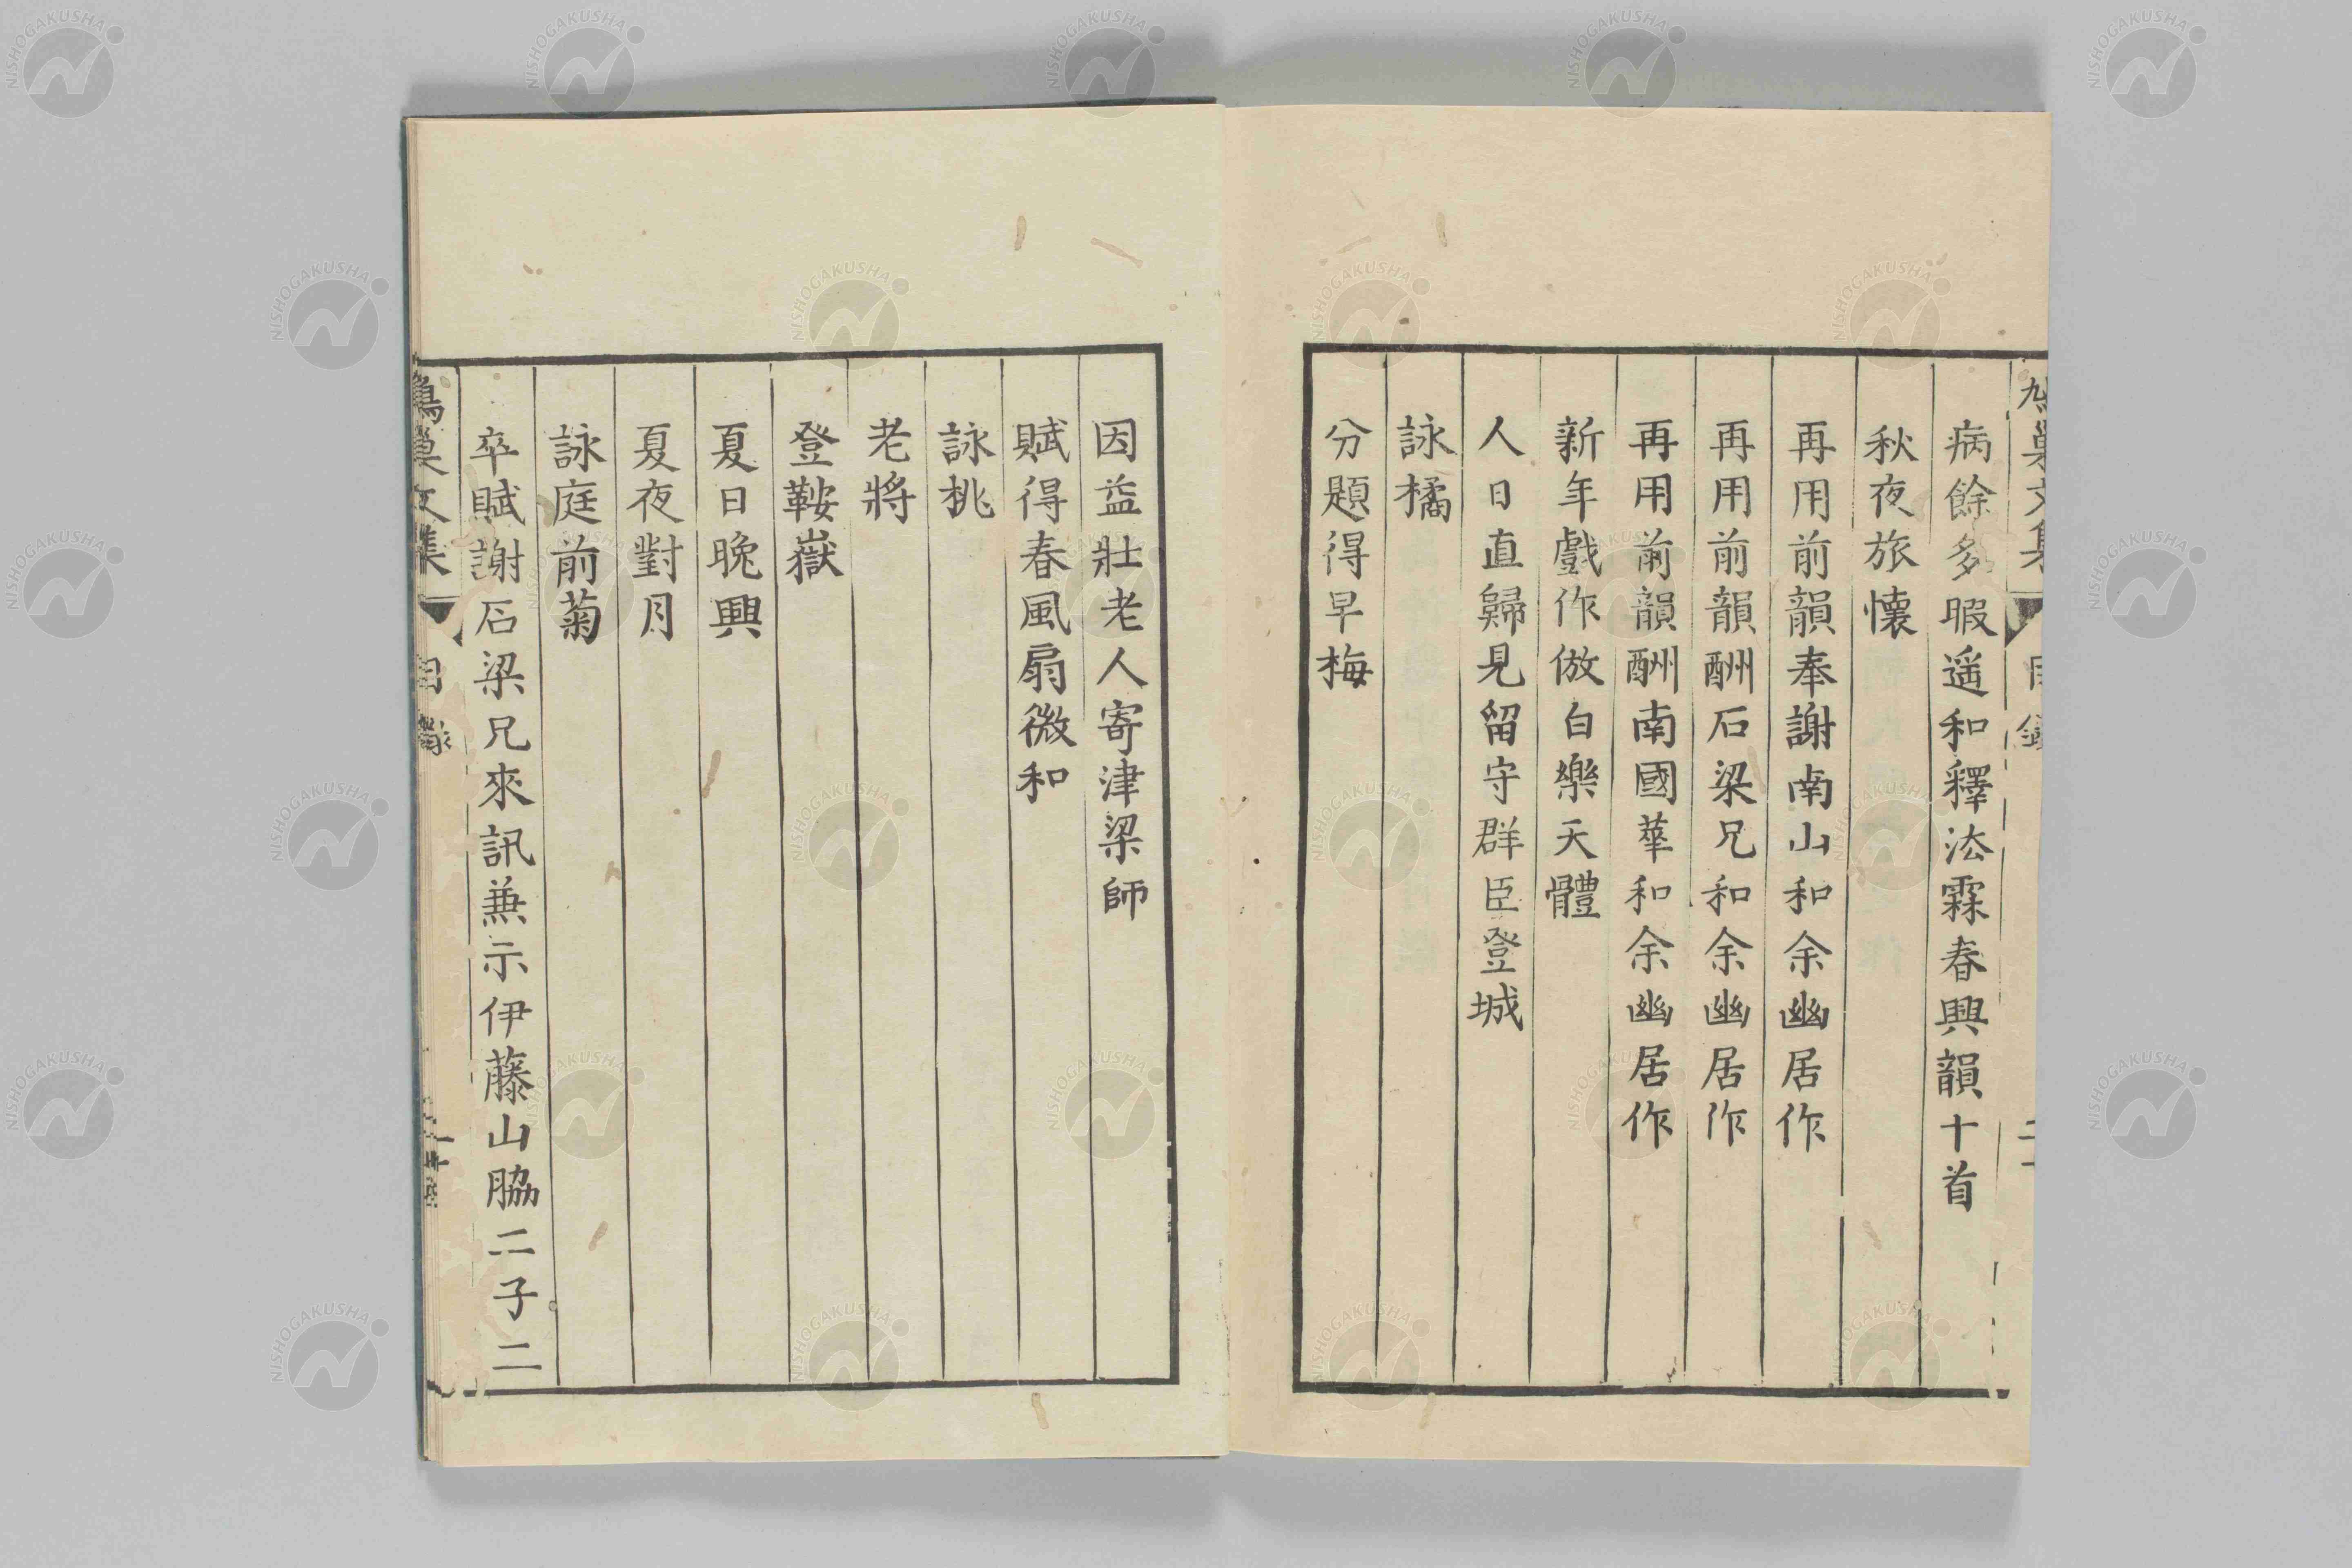 鳩巣文集 目録 二
病餘多暇遥和釋法霖春興韻十首
秋夜旅懐
再用前韻奉謝南山和余幽居作
再用前韻酬石梁兄和余幽居作
再用前韻酬南國華和余幽居作
新年戯作倣白樂天體
人日直歸見留守群臣登城
詠橘
分題得早梅
因益壯老人寄津梁師
賦得春風扇微和
詠桃
老將
登鞍嶽
夏日晩興
夏夜對月
詠庭前菊
卒賦謝石梁兄來訊兼示伊藤山脇二子二
鳩巣文集 目録
NISHOGAKUSHA